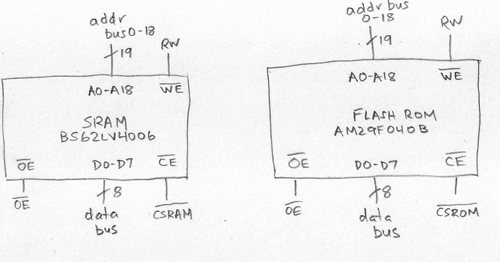 addr
bus 0-18
19
RW
A0-A18
W̅E̅
SRAM
BS62LV4006
O̅E̅
D0-D7
C̅E̅
O̅E̅
8
C̅S̅R̅A̅M̅
data
bus
addr bus
0-18
19
RW
A0-A18
W̅E̅
FLASH ROM
AM29F040B
O̅E̅
D0-D7
C̅E̅
O̅E̅
8
C̅S̅R̅O̅M̅
data
bus